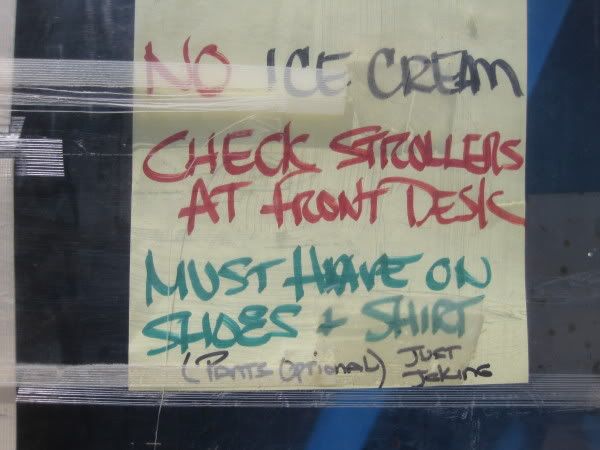 NO ICE CREAM
CHECK STROLLERS
AT FRONT DESK
MUST HAVE ON
SHOES + SHIRT
(PANTS OPTIONAL) JUST
JOKING